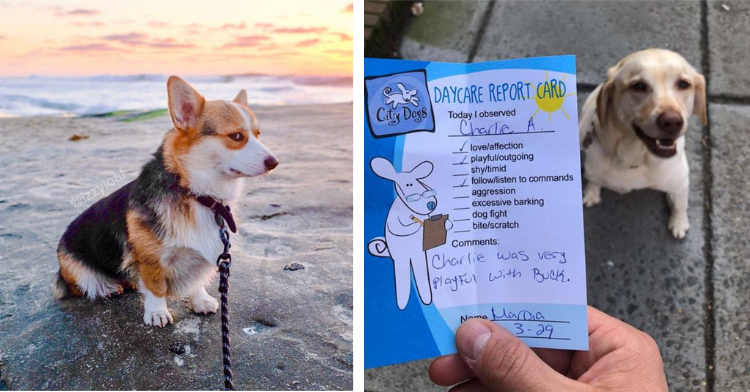 City Dogs
DAYCARE REPORT CARD
Today I observed
Charlie A.
✓ love/affection
✓ playful/outgoing
shy/timid
✓ follow/listen to commands
aggression
excessive barking
dog fight
bite/scratch
Comments:
Charlie was very
playful with Buck.
Name MarDia
3-29